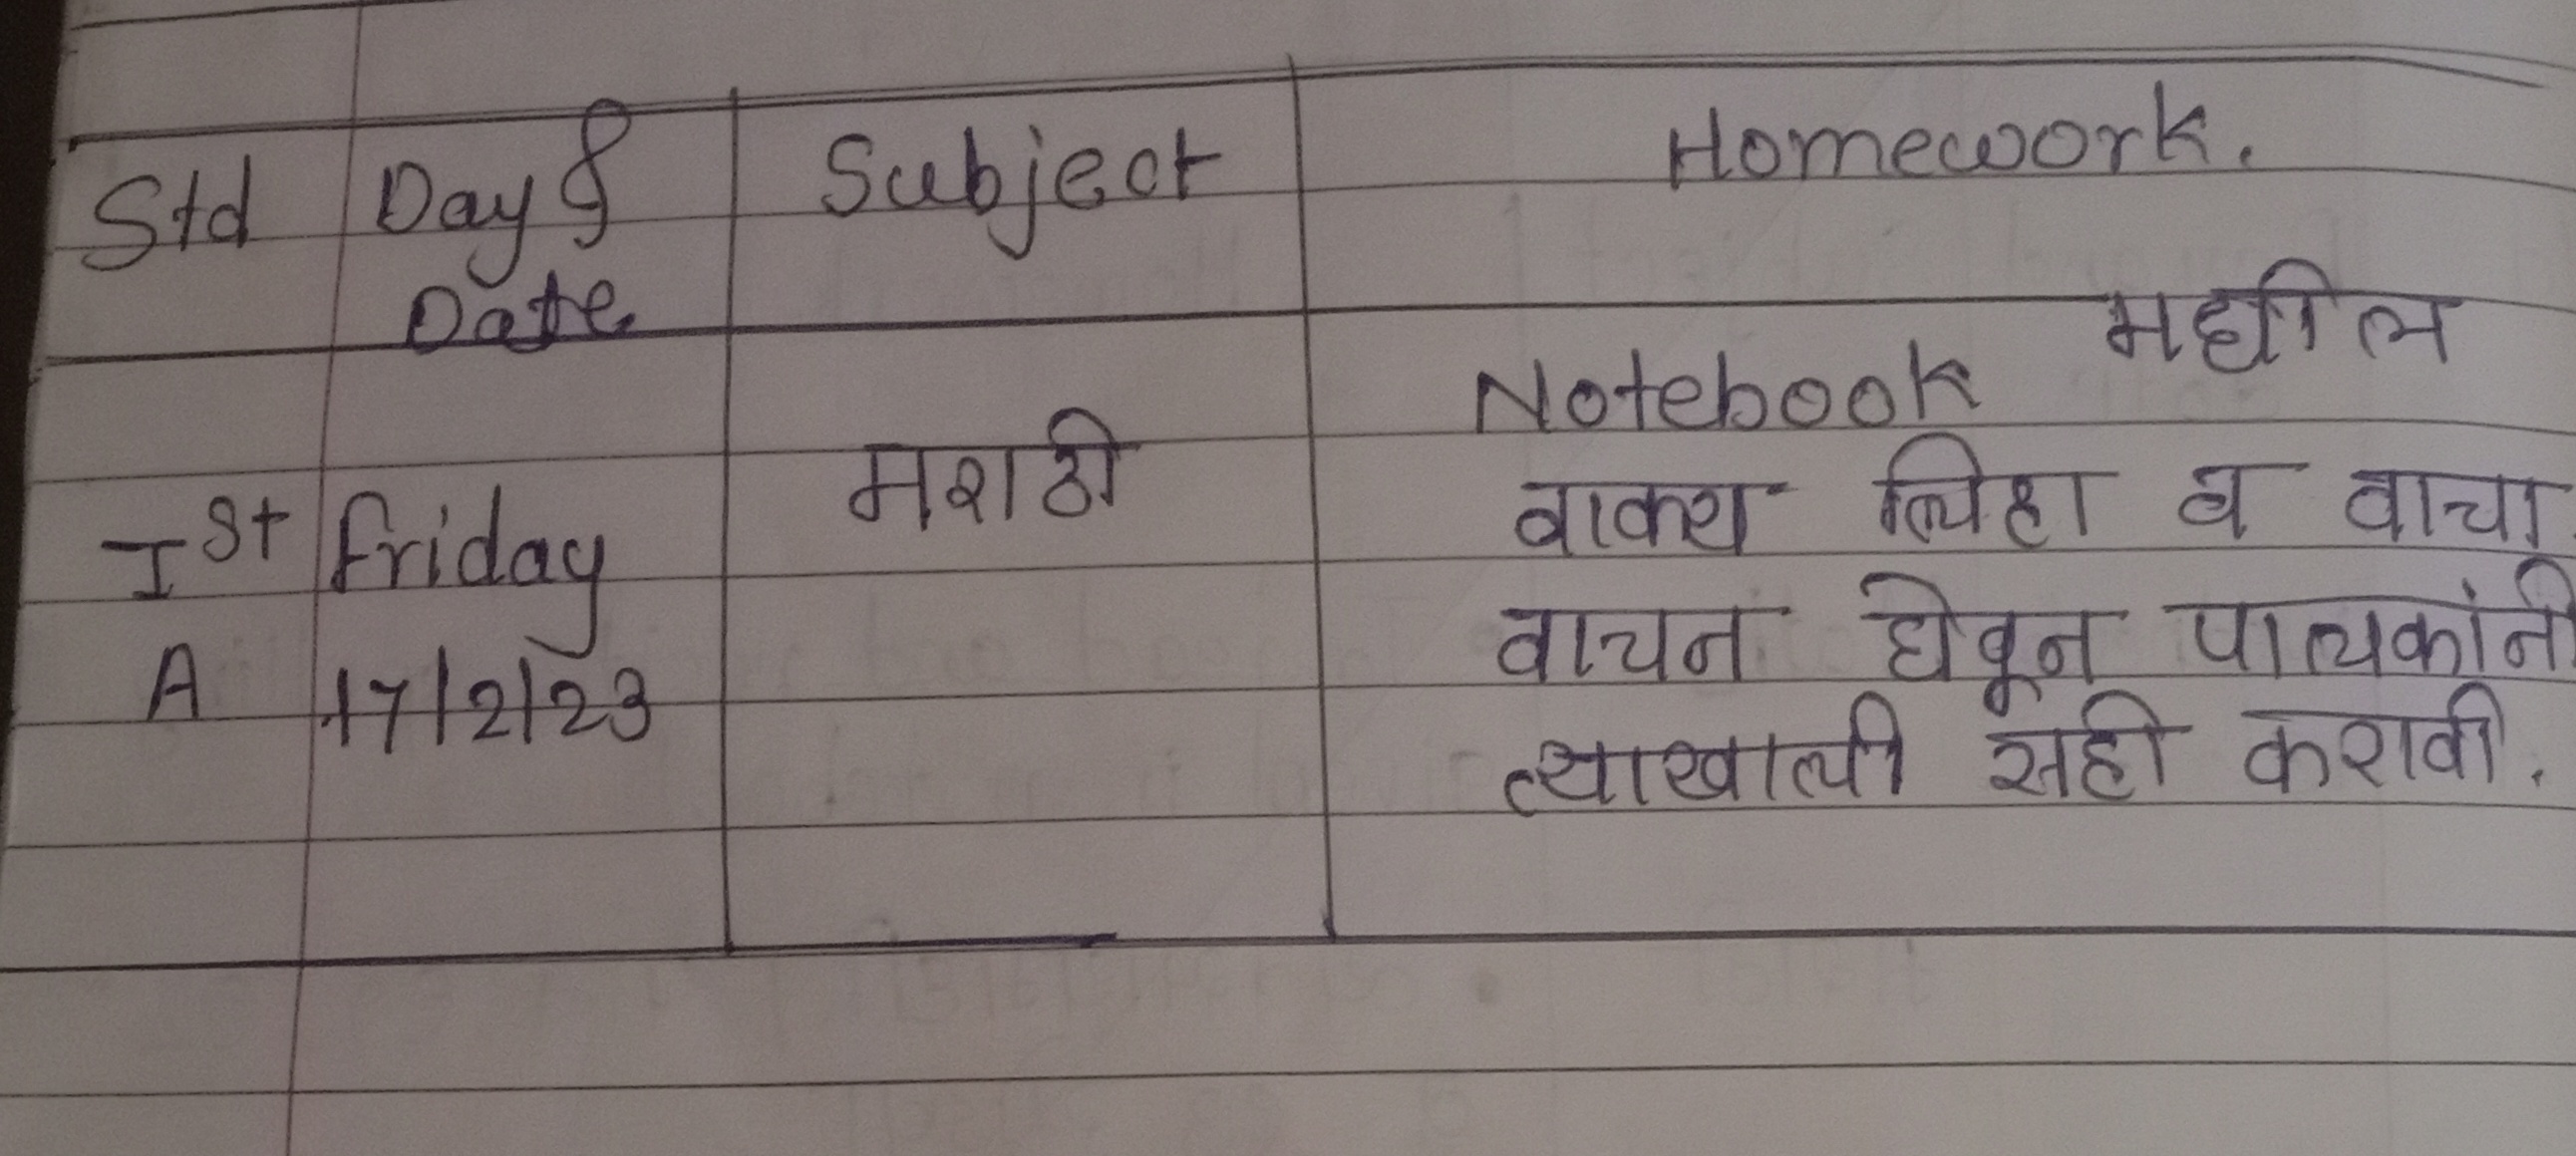 Std Day & Subject Homework.
Date
Notebook मधील
मराठी
वाक्य लिहा व वाचा.
Ist Friday
वाचन घेवून पालकांनी
A 17/2/23
त्याखाली सही करावी.